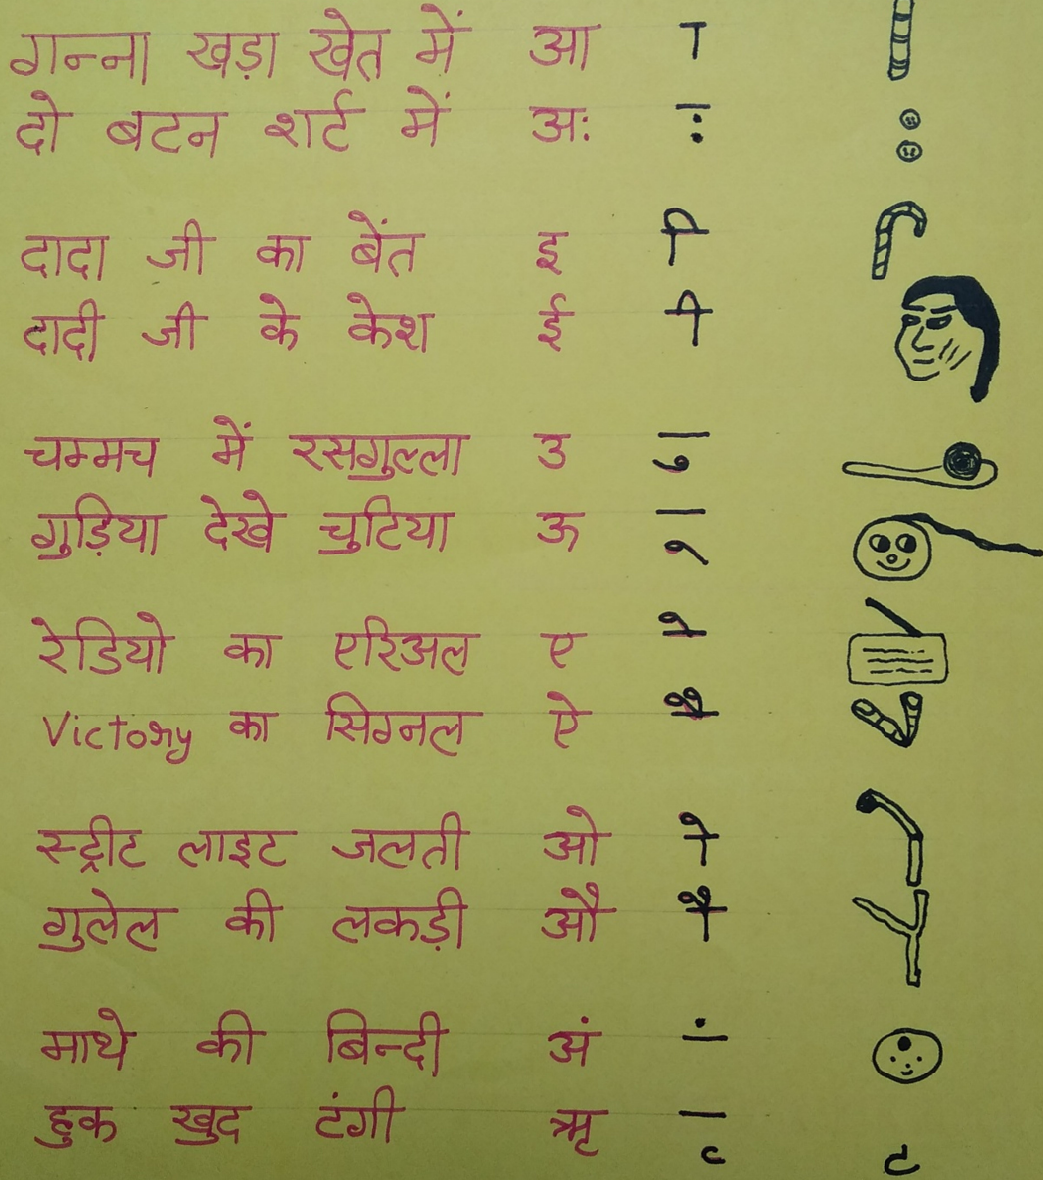 गन्ना खड़ा खेत में आ ा
दो बटन शर्ट में अः ः
दादा जी का बेंत इ ि
दादी जी के केश ई ी
चम्मच में रसगुल्ला उ ु
गुड़िया देखे चुटिया ऊ ू
रेडियो का एरिअल ए े
Victory का सिग्नल ऐ ै
स्ट्रीट लाइट जलती ओ ो
गुलेल की लकड़ी औ ौ
माथे की बिन्दी अं ं
हुक खुद टंगी ऋ ृ